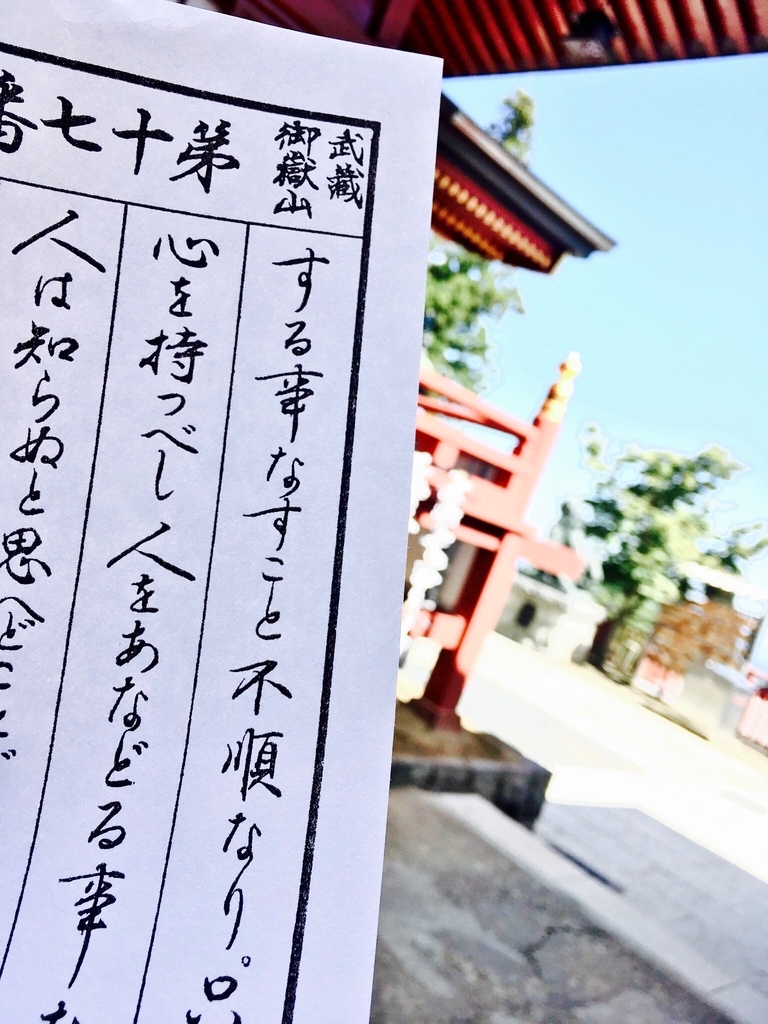 武蔵
御嶽山
第十七番
する事なすこと不順なり。
心を持つべし人をあなどる事
人は知らぬと思へど